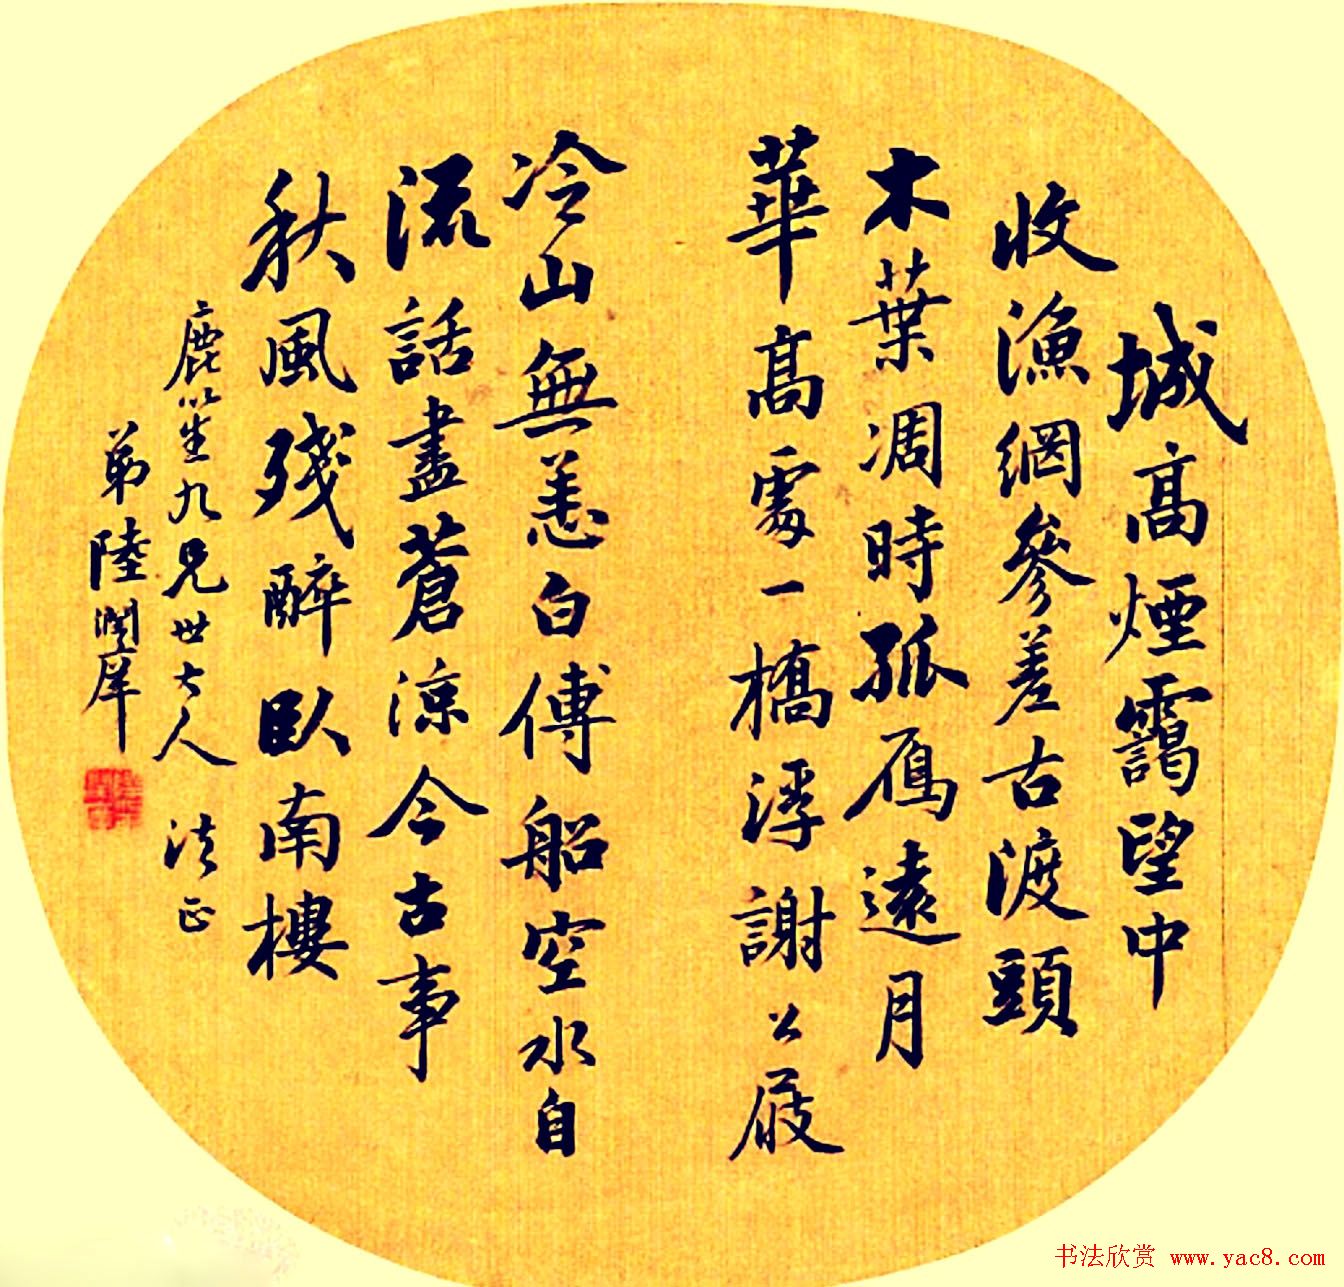 城高煙靄望中
收漁網參差古渡頭
木葉凋時孤雁遠月
華高處一橋浮謝公屐
冷山無恙白傅船空水自
流話盡蒼涼今古事
秋風殘醉臥南樓
鹿笙九兄世大人 法正
弟陸潤庠
书法欣赏 www.yac8.com